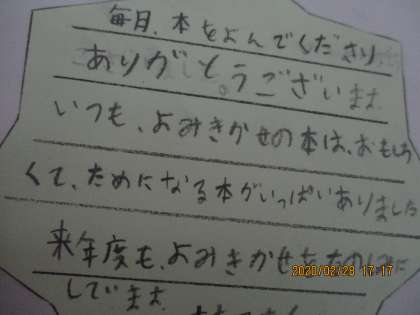 毎月、本をよんでくださり
ありがとうございます
いつも、よみきかせの本は、おもしろ
くて、ためになる本がいっぱいありました
来年度も、よみきかせをたのしみに
しています
2020/02/28 17:17